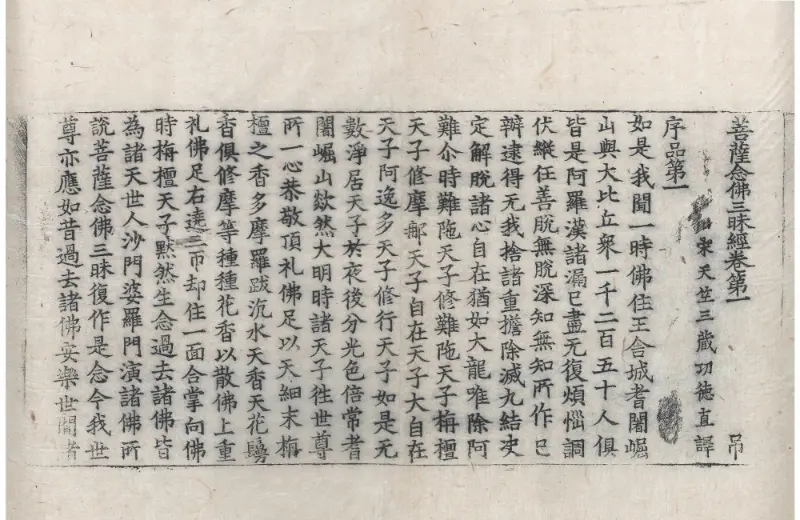 菩薩念佛三昧經卷第一
宋天竺三藏功徳直譯 吊
序品第一
如是我聞一時佛住王舍城耆闍崛
山與大比丘衆一千二百五十人俱
皆是阿羅漢諸漏已盡无復煩惱調
伏縱任善脫無脫深知無知所作已
辨逮得无我捨諸重擔除滅九結史
定解脫諸心自在猶如大龍唯除阿
難尒時難陁天子修難陁天子栴檀
天子修摩那天子自在天子大自在
天子阿逸多天子修行天子如是无
數淨居天子於夜後分光色倍常耆
闍崛山欻然大明時諸天子徃世尊
所一心恭敬頂礼佛足以天細末栴
檀之香多摩羅跋沉水天香天花鬘
香俱修摩等種種花香以散佛上重
礼佛足右遶三帀却住一面合掌向佛
時栴檀天子默然生念過去諸佛皆
為諸天世人沙門婆羅門演諸佛所
說菩薩念佛三昧復作是念今我世
尊亦應如昔過去諸佛安樂世間者